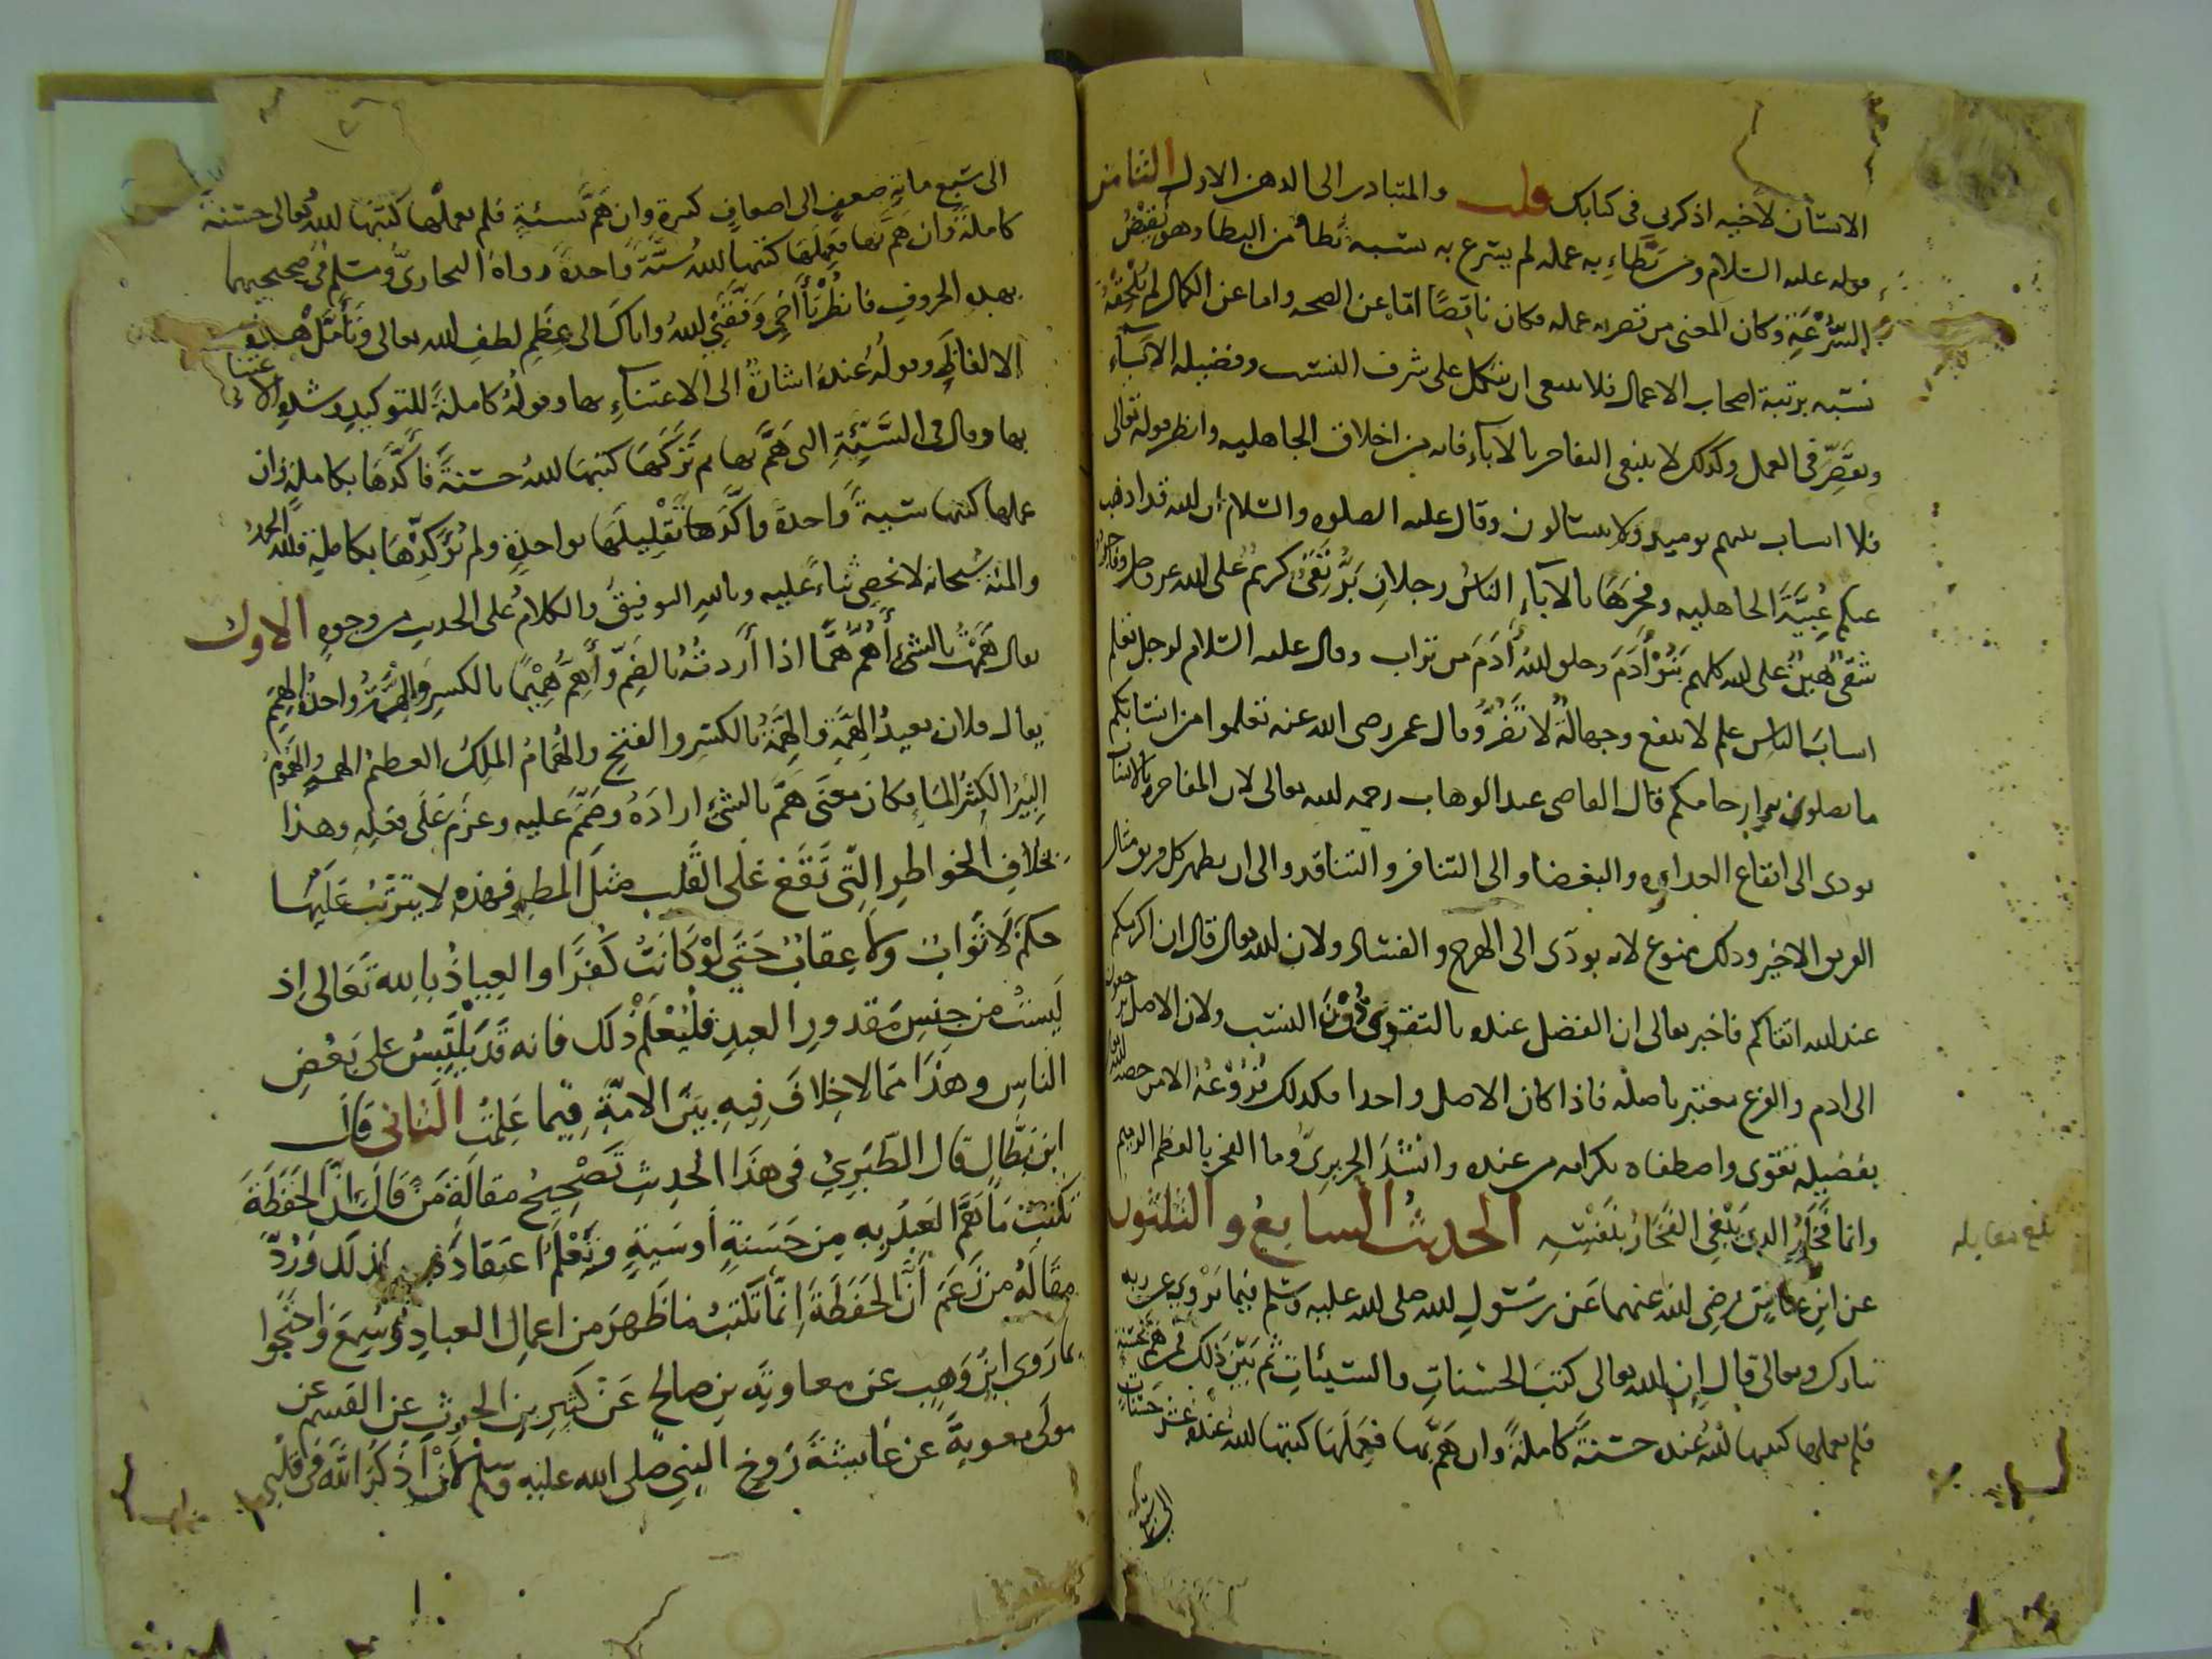 الانسان لاخيه اذكرنى فى كتابك قلت والمتبادر الى الذهن الاول الثامن
قوله عليه السلام ومن بطاء به عمله لم يسرع به نسبه بطا من البطا وهو نقيض
السرعة وكان المعنى من قصر به عمله فكان ناقصا اما عن الصحه واما عن الكمال لم يلحقه
نسبه برتبة اصحاب الاعمال فلا ينبغى ان يتكل على شرف النسب وفضيله الآباء
ويقصر فى العمل وكذلك لا ينبغى التفاخر بالآباء فانه من اخلاق الجاهليه وانظر قوله تعالى
فلا انساب بينهم يوميذ ولا يتسالون وقال عليه الصلوه والسلام ان الله قد اذهب
عنكم عبية الجاهليه وفخرها بالآباء الناس رجلان بر تقى كريم على الله عز وجل وفاجر
شقى هين على الله كلهم بنو آدم وخلق الله آدم من تراب وقال عليه السلام لرجل تعلم
انساب الناس علم لا ينفع وجهالة لا تضر وقال عمر رضى الله عنه تعلموا من انسابكم
ما تصلون به ارحامكم قال القاضى عبد الوهاب رحمه الله تعالى لان المفاخره بالانساب
تودى الى ايقاع العداوه والبغضاء والى التنافر والى ان يظهر كل فريق مثالب
الفريق الاخير وذلك ممنوع لانه يودى الى الهرج والفساد ولان الله تعالى قال ان اكرمكم
عند الله اتقاكم فاخبر تعالى ان الفضل عنده بالتقوى دون النسب ولان الاصل يرجعون
الى ادم والفرع معتبر باصله فاذا كان الاصل واحدا فكذلك فروعه الا من خصه الله
بفضيله تقوى واصطفاه بكرامه من عنده وانشد الحريرى وما الفخر بالعظم الرميم
وانما فخار الذى يبغى الفخار بنفسه الحديث السابع والثلثون
بلغ مقابله
عن ابن عباس رضى الله عنهما عن رسول الله صلى الله عليه وسلم فيما يروى عن ربه
تبارك وتعالى قال ان الله تعالى كتب الحسنات والسيئات ثم بين ذلك فمن هم بحسنة
فلم يعملها كتبها الله عنده حسنة كاملة وان هم بها فعملها كتبها الله عنده عشر حسنات
الى سبع
الى سبع ماية ضعف الى اضعاف كثيرة وان هم بسيئة فلم يعملها كتبها الله تعالى حسنة
كاملة وان هم بها فعملها كتبها الله سيئة واحدة رواه البخارى ومسلم فى صحيحيهما
بهذه الحروف فانظر يا أخى وفقنى الله واياك الى عظم لطف الله تعالى وتأمل هذه
الالفاظ وقوله عنده اشارة الى الاعتناء بها وقوله كاملة للتوكيد وشدة الاعتناء
بها وقال فى السيئة التى هم بها ثم تركها كتبها الله حسنة فأكدها بكاملة وان
عملها كتبها سيئة واحدة واكد تقليلها بواحدة ولم يؤكدها بكاملة فلله الحمد
والمنة سبحانه لا نحصى ثناء عليه وبالله التوفيق والكلام على الحديث من وجوه الاول
يقال هممت بالشئ أهم هما اذا أردته بالضم وأهم هميما بالكسر والهمة واحدة الهمم
يقال فلان بعيد الهمة والهمة بالكسر والفتح والهمام الملك العظيم الهمة والهموم
البير الكثيرة الماء فكان معنى هم بالشئ اراده وصمم عليه وعزم على فعله وهذا
بخلاف الخواطر التى تقع على القلب مثل المطر فهذه لا يترتب عليها
حكم لا ثواب ولا عقاب حتى لو كانت كفرا والعياذ بالله تعالى اذ
ليست من جنس مقدور العبد فليعلم ذلك فانه قد يلتبس على بعض
الناس وهذا مما لا خلاف فيه بين الامة فيما علمت الثانى قال
ابن بطال قال الطبرى فى هذا الحديث تصحيح مقالة من قال ان الحفظة
تكتب ما يهم العبد به من حسنة أو سيئة وتعلم اعتقاده لذلك ورد
مقالة من زعم أن الحفظة انما تكتب ما ظهر من اعمال العباد وسمع واحتجوا
بما روى ابن وهب عن معاوية بن صالح عن كثير بن الحرث عن القسم عن
مولى معوية عن عايشة زوج النبى صلى الله عليه وسلم لأن أذكر الله فى قلبى